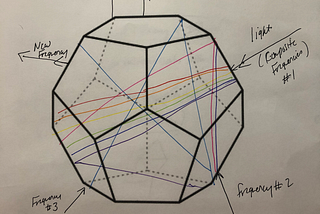 New
Frequency
light
(Composite
Frequency)
#1
Frequency
#3
Frequency #2